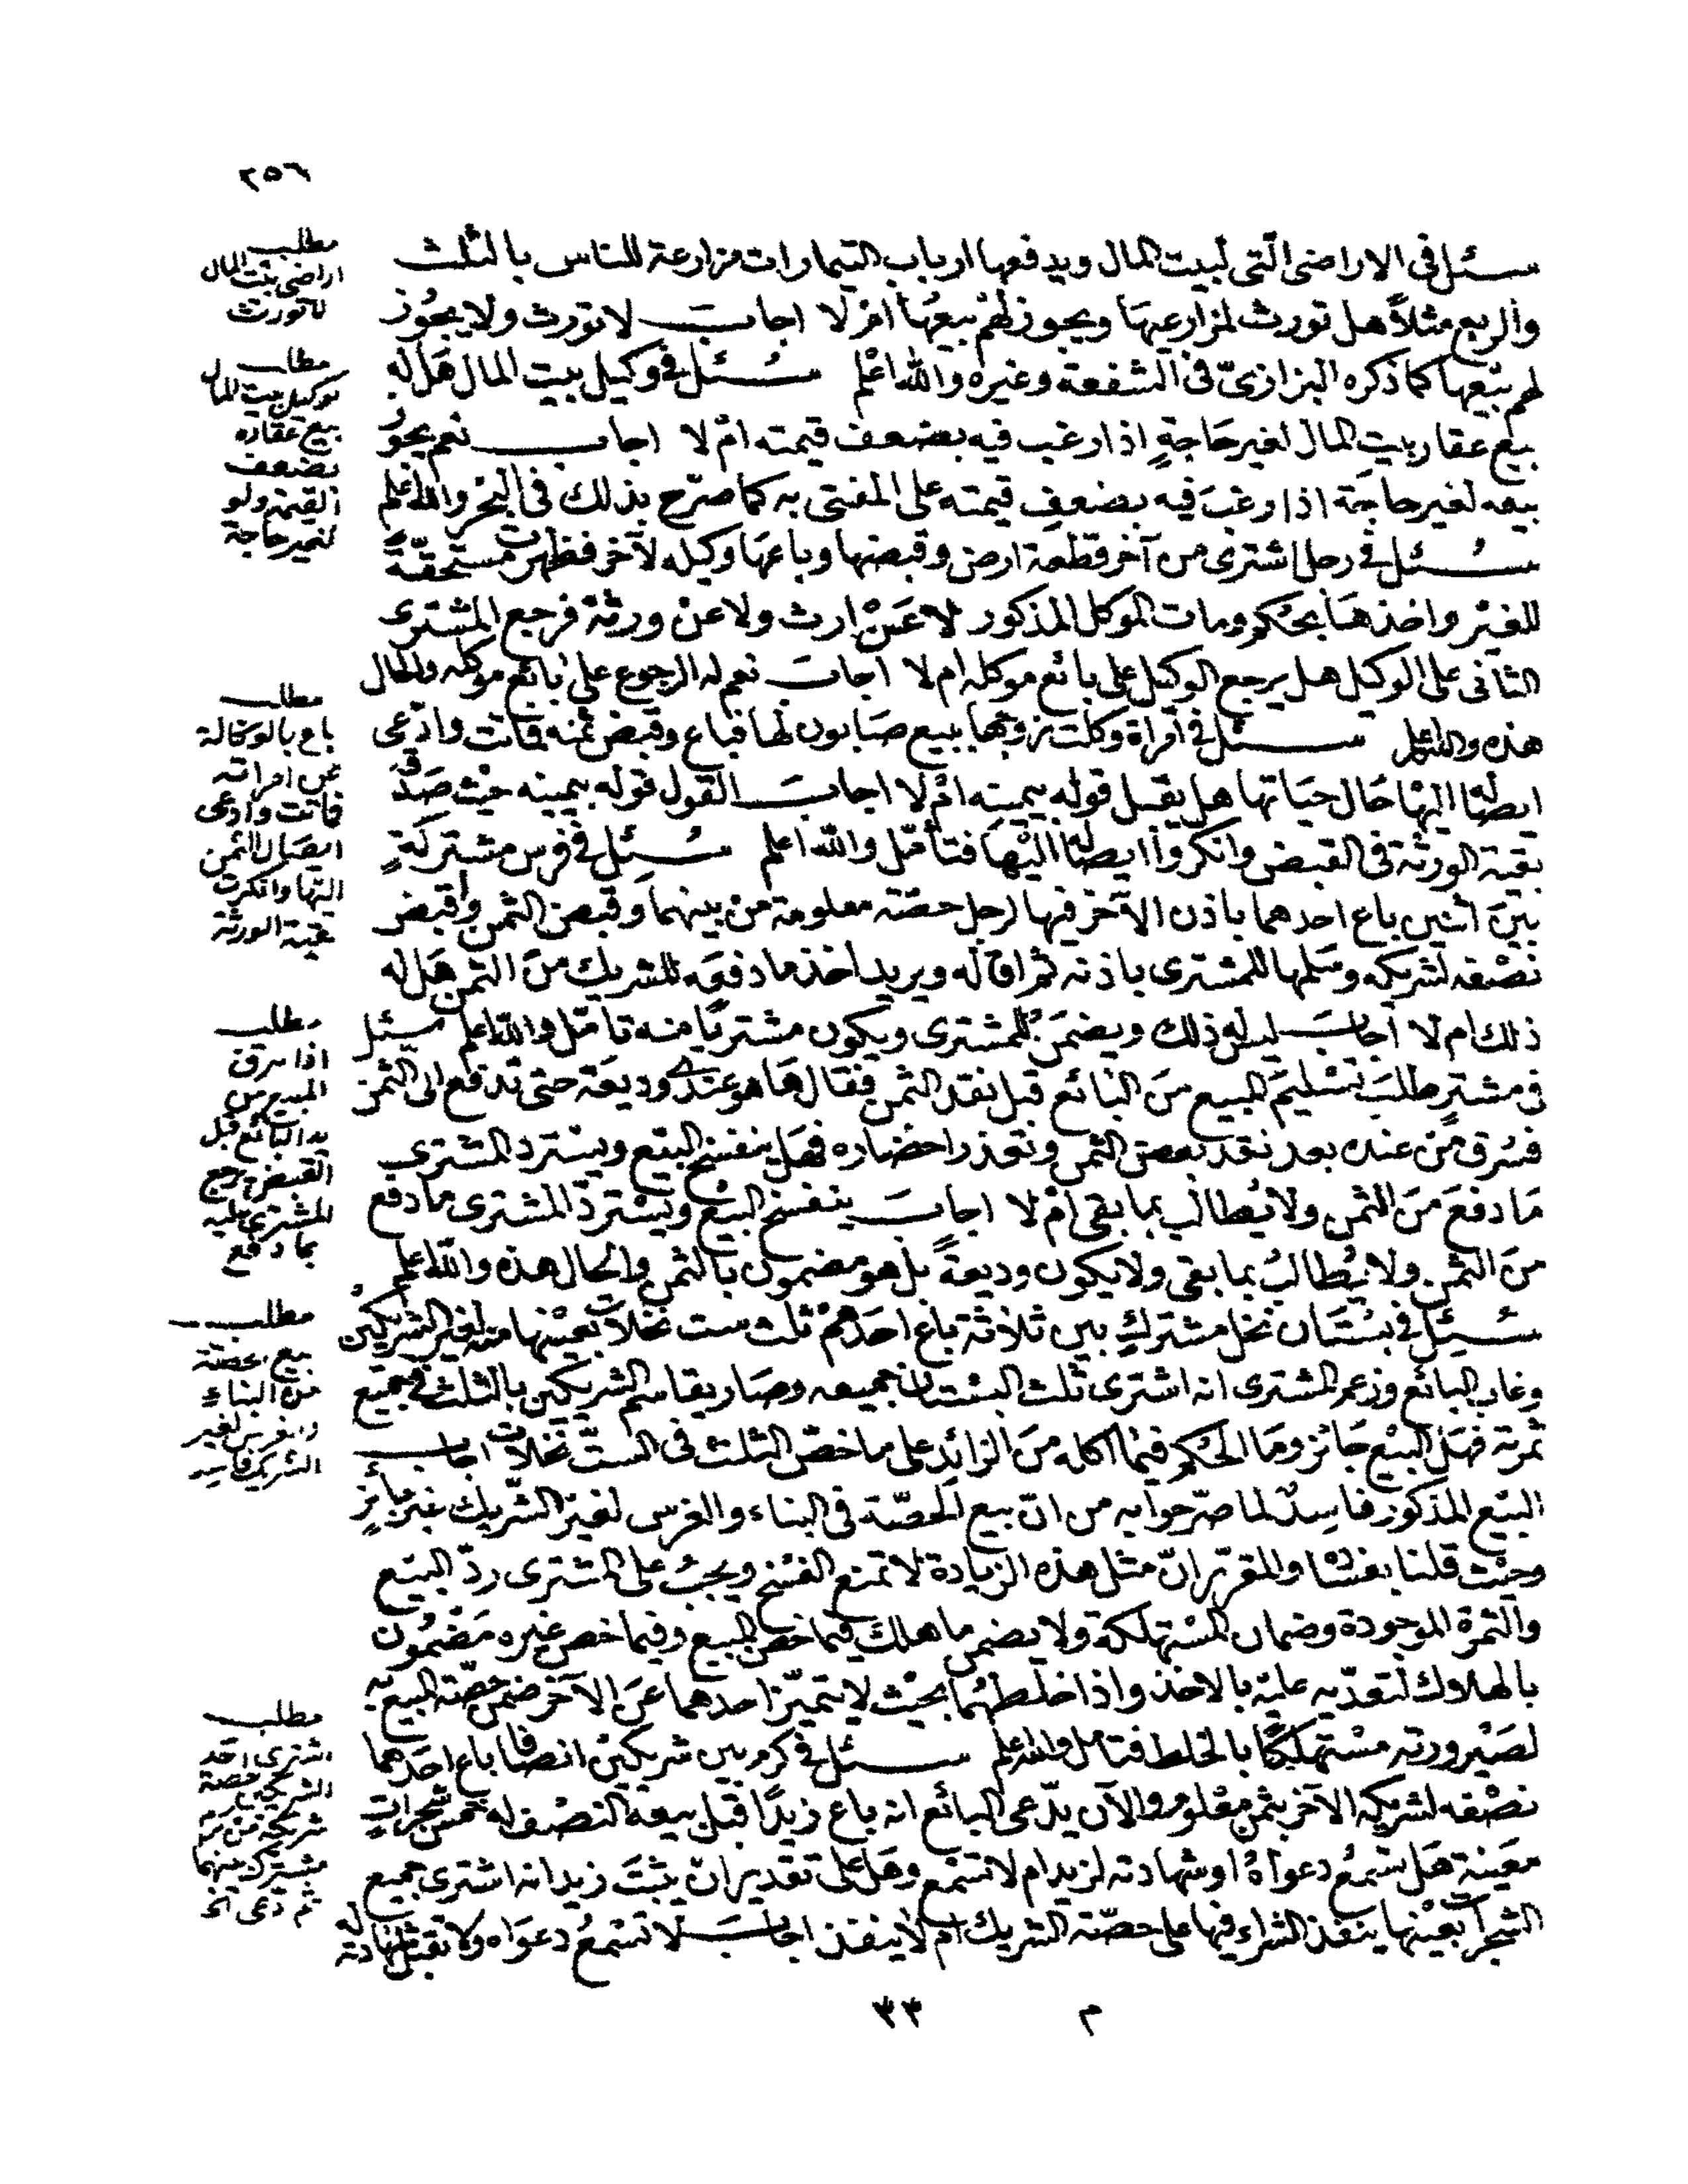 ٢٥٦
سئل فى الاراضى الّتى لبيت المال ويدفعها ارباب التيمارات مزارعة للناس بالثلث
والربع مثلاً هل تورث لمزارعيها ويجوز لهم بيعها ام لا اجاب لا تورث ولا يجوز
لهم بيعها كما ذكره البزازىّ فى الشفعة وغيره والله اعلم سئل فى وكيل بيت المال هل له
بيع عقار بيت المال لغير حاجةٍ اذا رغب فيه بضعف قيمته ام لا اجاب نعم يجوز
بيعه لغير حاجة اذا رغب فيه بضعف قيمته على المفتى به كما صرّح بذلك فى البحر والله اعلم
سئل فى رجل اشترى من آخر قطعة ارض وقبضها وباعها وكيله لآخر فظهرت مستحقّة
للغير واخذها بحكم ومات الموكل المذكور لا عن ارث ولا عن ورثة فرجع المشترى
الثانى على الوكيل هل يرجع الوكيل على بائع موكله ام لا اجاب نعم له الرجوع على بائع موكله والحال
هذه والله اعلم سئل فى امراة وكلت زوجها ببيع صابون لها فباع وقبض ثمنه فماتت وادّعى
ايصاله اليها حال حياتها هل يقبل قوله بيمينه ام لا اجاب القول قوله بيمينه حيث صدقه
بقية الورثة فى القبض وانكروا ايصاله اليها فتأمّل والله اعلم سئل فى فرس مشتركةٍ
بين اثنين باع احدهما باذن الآخر فيها لرجل حصّة معلومة من بينهما وقبض الثمن واقبض
نصفه لشريكه وسلمها للمشترى باذنه ثم اقاله ويريد اخذ ما دفعه للشريك من الثمن هل له
ذلك ام لا اجاب ليس له ذلك ويضمن للمشترى ويكون مشتريًا منه تامّل والله اعلم سئل
فى مشترٍ طلب تسليم المبيع من البائع قبل نقد الثمن فقال ها هو عندى وديعة حتى تدفع الى الثمن
فسرق من عنده بعد نقد بعض الثمن وتعذر احضاره فهل ينفسخ البيع ويسترد المشترى
ما دفع من الثمن ولا يطالب بما بقى ام لا اجاب ينفسخ البيع ويستردّ المشترى ما دفع
من الثمن ولا يطالب بما بقى ولا يكون وديعةً بل هو مضمون بالثمن والحال هذه والله اعلم
سئل فى بستان نخل مشترك بين ثلاثة باع احدهم ثلث ست نخلات بعينها منه لغير الشريكين
وغاب البائع وزعم المشترى انه اشترى ثلث البستان جميعه وصار يقاسم الشريكين بالثلث فى جميع
ثمرته فهل البيع جائز وما الحكم فيما اكله من الزائد على ما خصّ الثلث فى الستّ نخلات اجاب
البيع المذكور فاسد لما صرّحوا به من انّ بيع الحصّة فى البناء والغرس لغير الشّريك غير جائزٍ
وحيث قلنا بفسادٍ والمقرّر انّ مثل هذه الزيادة لا تمنع الفسخ ويجب على المشترى ردّ المبيع
والثمرة الموجودة وضمان المستهلكة ولا يضمن ما هلك فيما خصّ المبيع وفيما خص غيره مضمون
بالهلاك لتعدّيه عليه بالاخذ واذا خلطهما بحيث لا يتميّز احدهما عن الآخر ضمن حصّة المبيع به
لصيرورته مستهلكًا بالخلط فتامل والله اعلم سئل فى كرم بين شريكين انصافا باع احدهما
نصفه لشريكه الآخر بثمن معلوم والآن يدّعى البائع انه باع زيدًا قبل بيعه النصف له خمس شجراتٍ
معينة هل تسمع دعواه او شهادته لزيد ام لا تسمع وهل على تقدير ان يثبت زيد انه اشترى جميع
الشجرات بعينها ينفذ الشراء فيها على حصّة الشريك ام لا ينفذ اجاب لا تسمع دعواه ولا تقبل شهادته له
مطلب
اراضى بيت المال
لا تورث
مطلب
لوكيل بيت المال
بيع عقاره
بضعف
القيمة ولو
لغير حاجة
مطلب
باع بالوكالة
عن امراته
فماتت وادعى
ايصال الثمن
اليها وانكرت
بقية الورثة
مطلب
اذا سرق
المبيع من
يد البائع قبل
القبض يرجع
المشترى عليه
بما دفع
مطلب
بيع حصة
من البناء
والغرس لغير
الشريك فاسد
مطلب
اشترى احد
الشريكين حصة
شريكه من كرم
مشترك بينهما
ثم ادّعى انه
م ٣٣